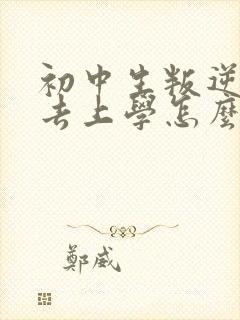 初中生叛逆
去上學怎麼
鄭威